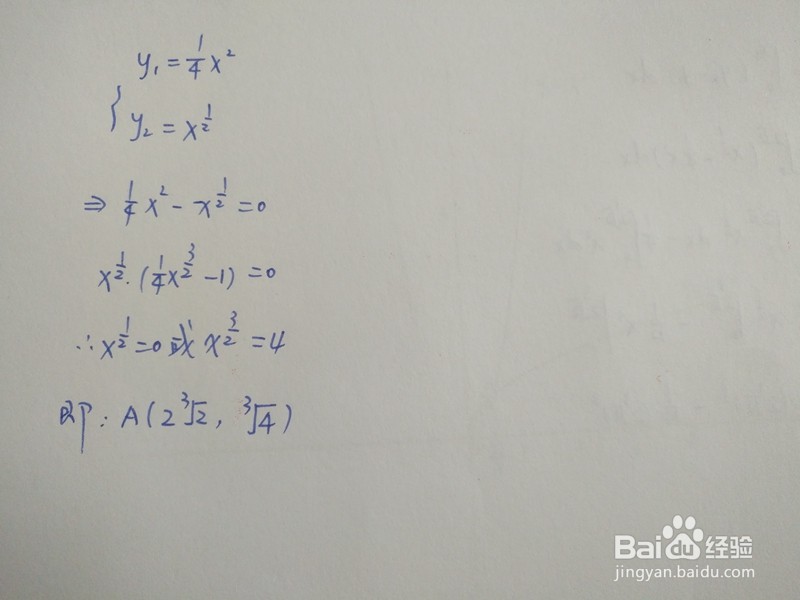 y₁ = 1/4 x²
{ y₂ = x^(1/2)
⇒ 1/4 x² - x^(1/2) = 0
x^(1/2) · (1/4 x^(3/2) - 1) = 0
∴ x^(1/2) = 0 或 x^(3/2) = 4
即: A(2∛2, ∛4)
Baidu经验
jingyan.baidu.com